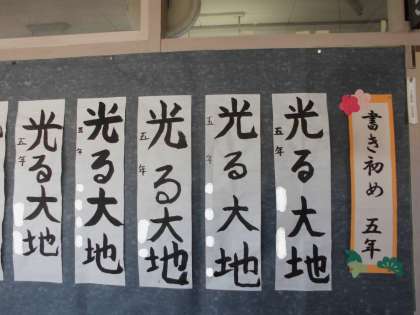 書き初め 五年
光る大地
五年
光る大地
五年
光る大地
五年
光る大地
五年
光る大地
五年